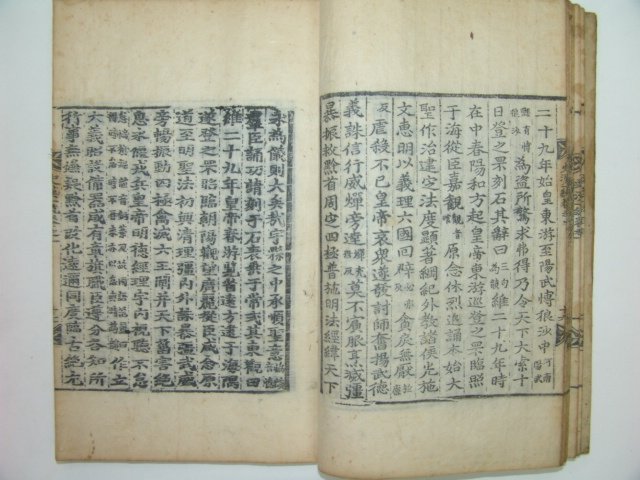 二十九年始皇東游至陽武博狼沙中河南陽武
縣有博狼沙為盜所驚求弗得乃令天下大索十
日登之罘刻石其辭曰三句為韻維二十九年時
在中春陽和方起皇帝東游巡登之罘臨照
于海從臣嘉觀觀音原念休烈追誦本始大
聖作治建定法度顯著綱紀外教諸侯光施
文惠明以義理六國回辟貪戾無厭
虐殺不已皇帝哀衆遂發討師奮揚武德
義誅信行威燀旁達莫不賓服烹滅彊
暴振救黔首周定四極普施明法經緯天下
永為儀則大矣哉宇縣之中承順聖意
羣臣誦功請刻于石表垂于常式其東觀曰
維二十九年皇帝春游覽省遠方逮于海隅
遂登之罘臨朝陽觀望廣麗從臣咸念原
道至明聖法初興清理疆內外誅暴彊武威
旁暢振動四極禽滅六王闡并天下甾害絕
息永偃戎兵皇帝明德經理宇內視聽不怠
作立
大義昭設備器咸有章旗職臣遵分各知所
行事無嫌疑黔首改化遠邇同度臨古絕尤